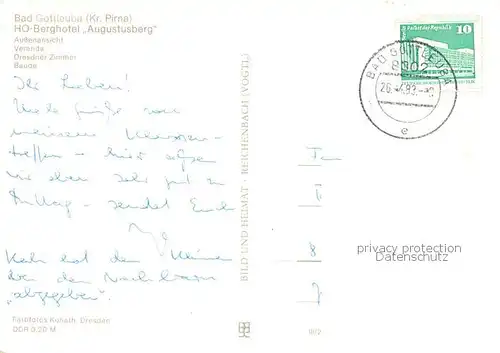 Bad Gottleuba (Kr. Pirna)
HO-Berghotel „Augustusberg"
Außenansicht
Veranda
Dresdner Zimmer
Baude
Ihr Lieben!
Viele Grüße von
meinem Klassen-
treffen – hier aßen
wir eben sehr gut zu
Mittag – sendet Euch
hat den Kleinen
bei den Nachbarn
„abgegeben".
Farbfotos Kühath, Dresden
DDR 0,20 M
BILD UND HEIMAT · REICHENBACH (VOGTL)
Palast der Republik
10
BAD GOTTLEUBA
8302
e
privacy protection
Datenschutz